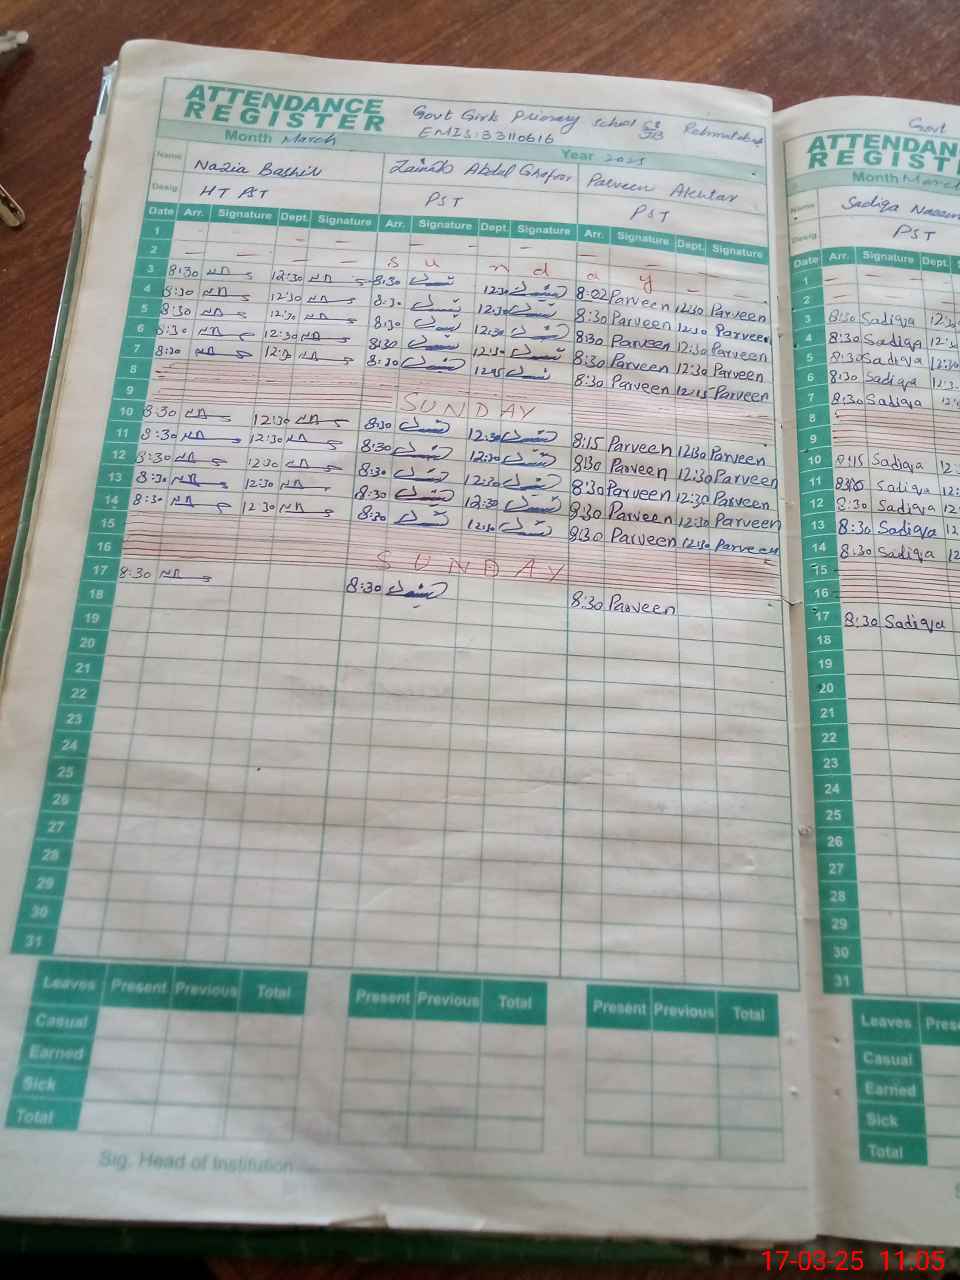 ATTENDANCE REGISTER Govt Girls Primary School 68/JB Rehmatabad
EMIS:33110616
Month March Year 2025
Name Nazia Bashir Zainab Abdul Ghafoor Parveen Akhtar
Desig. PST PST
Date Arr. Signature Dept. Signature Arr. Signature Dept. Signature Arr. Signature Dept. Signature
1 — — — — — —
2 — — — — — —
S u n d a y
3 8:30 12:30 8:30 12:30 8:02 Parveen 12:30 Parveen
4 8:30 12:30 8:30 12:30 8:30 Parveen 12:30 Parveen
5 8:30 12:30 8:30 12:30 8:30 Parveen 12:30 Parveen
6 8:30 12:30 8:30 12:30 8:30 Parveen 12:30 Parveen
7 8:30 12:30 8:30 12:15 8:30 Parveen 12:15 Parveen
8
9 SUNDAY
10 8:30 12:30 8:30 12:30 8:15 Parveen 12:30 Parveen
11 8:30 12:30 8:30 12:30 8:30 Parveen 12:30 Parveen
12 8:30 12:30 8:30 12:30 8:30 Parveen 12:30 Parveen
13 8:30 12:30 8:30 12:30 8:30 Parveen 12:30 Parveen
14 8:30 12:30 8:30 12:30 8:30 Parveen 12:30 Parveen
15
16 SUNDAY
17 8:30 8:30 8:30 Parveen
18
19
20
21
22
23
24
25
26
27
28
29
30
31
Leaves Present Previous Total Present Previous Total Present Previous Total
Casual
Earned
Sick
Total
Sig. Head of Institution
Govt
ATTENDAN
REGIST
Month March
Name Sadiqa
Desig. PST
Date Arr. Signature Dept.
1 — —
2 — —
3 8:30 Sadiqa
4 8:30 Sadiqa
5 8:30 Sadiqa
6 8:30 Sadiqa
7 8:30 Sadiqa
8
9
10 8:15 Sadiqa
11 8:30 Sadiqa
12 8:30 Sadiqa
13 8:30 Sadiqa
14 8:30 Sadiqa
15
16
17 8:30 Sadiqa
18
19
20
21
22
23
24
25
26
27
28
29
30
31
Leaves Prese
Casual
Earned
Sick
Total
17-03-25 11:05